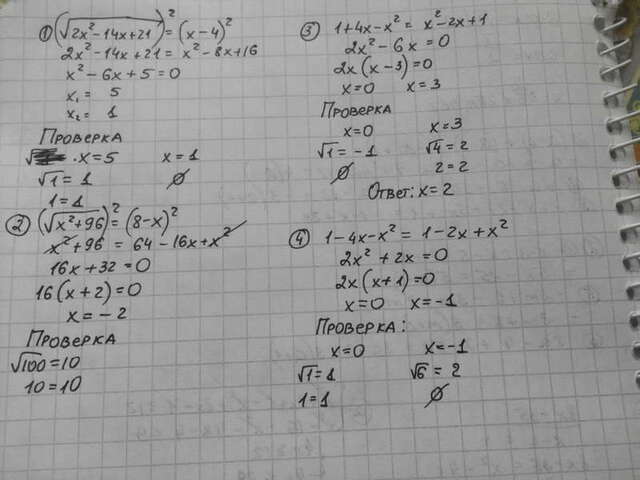 ① (√2x²-14x+21)² = (x-4)²
2x²-14x+21 = x²-8x+16
x²-6x+5=0
x₁ = 5
x₂ = 1
Проверка
√ · x=5 x=1
√1 = 1 ∅
1=1
② (√x²+96)² = (8-x)²
x²+96 = 64-16x+x²
16x+32=0
16(x+2)=0
x=-2
Проверка
√100=10
10=10
③ 1+4x-x² = x²-2x+1
2x²-6x=0
2x(x-3)=0
x=0 x=3
Проверка
x=0 x=3
√1=-1 √4=2
∅ 2=2
Ответ: x=2
④ 1-4x-x² = 1-2x+x²
2x²+2x=0
2x(x+1)=0
x=0 x=-1
Проверка:
x=0 x=-1
√1=1 √6=2
1=1 ∅